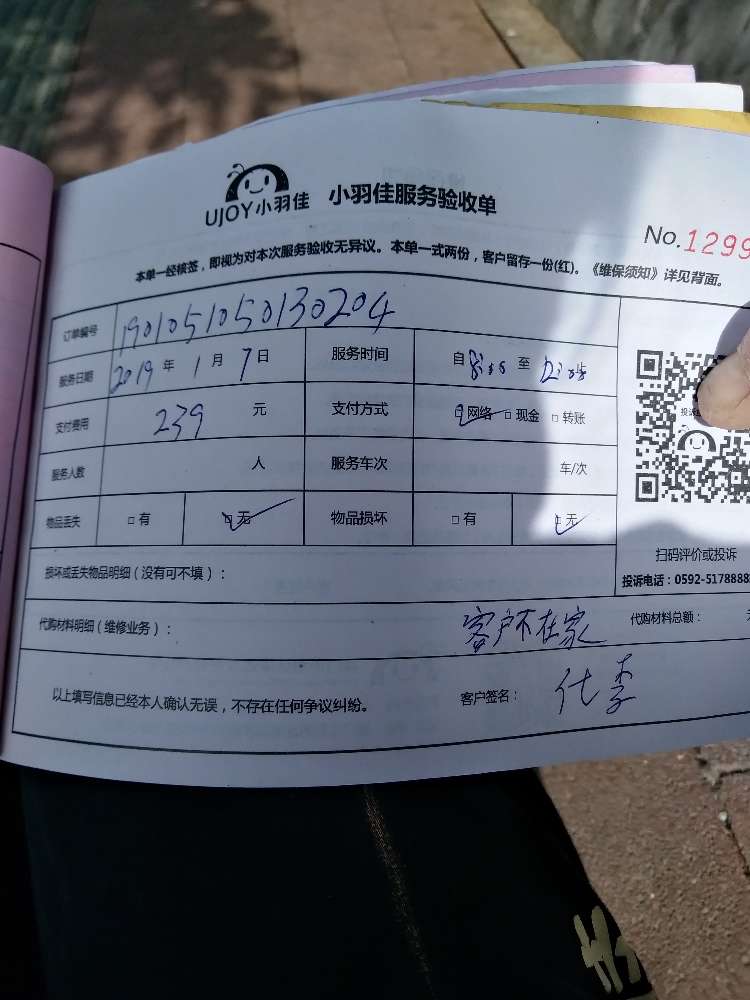 UJOY小羽佳 小羽佳服务验收单
No.1299
本单一经核签，即视为对本次服务验收无异议。本单一式两份，客户留存一份(红)。《维保须知》详见背面。
订单编号 1901051050130204
服务日期 2019年1月7日 服务时间 自8:00至12:05
支付费用 239元 支付方式 网络 现金 转账
服务人数 人 服务车次 车/次
物品丢失 有 无 物品损坏 有 无
扫码评价或投诉
投诉电话：0592-5178888
损坏或丢失物品明细（没有可不填）：
代购材料明细（维修业务）： 客户不在家 代购材料总额：
以上填写信息已经本人确认无误，不存在任何争议纠纷。 客户签名： 代李